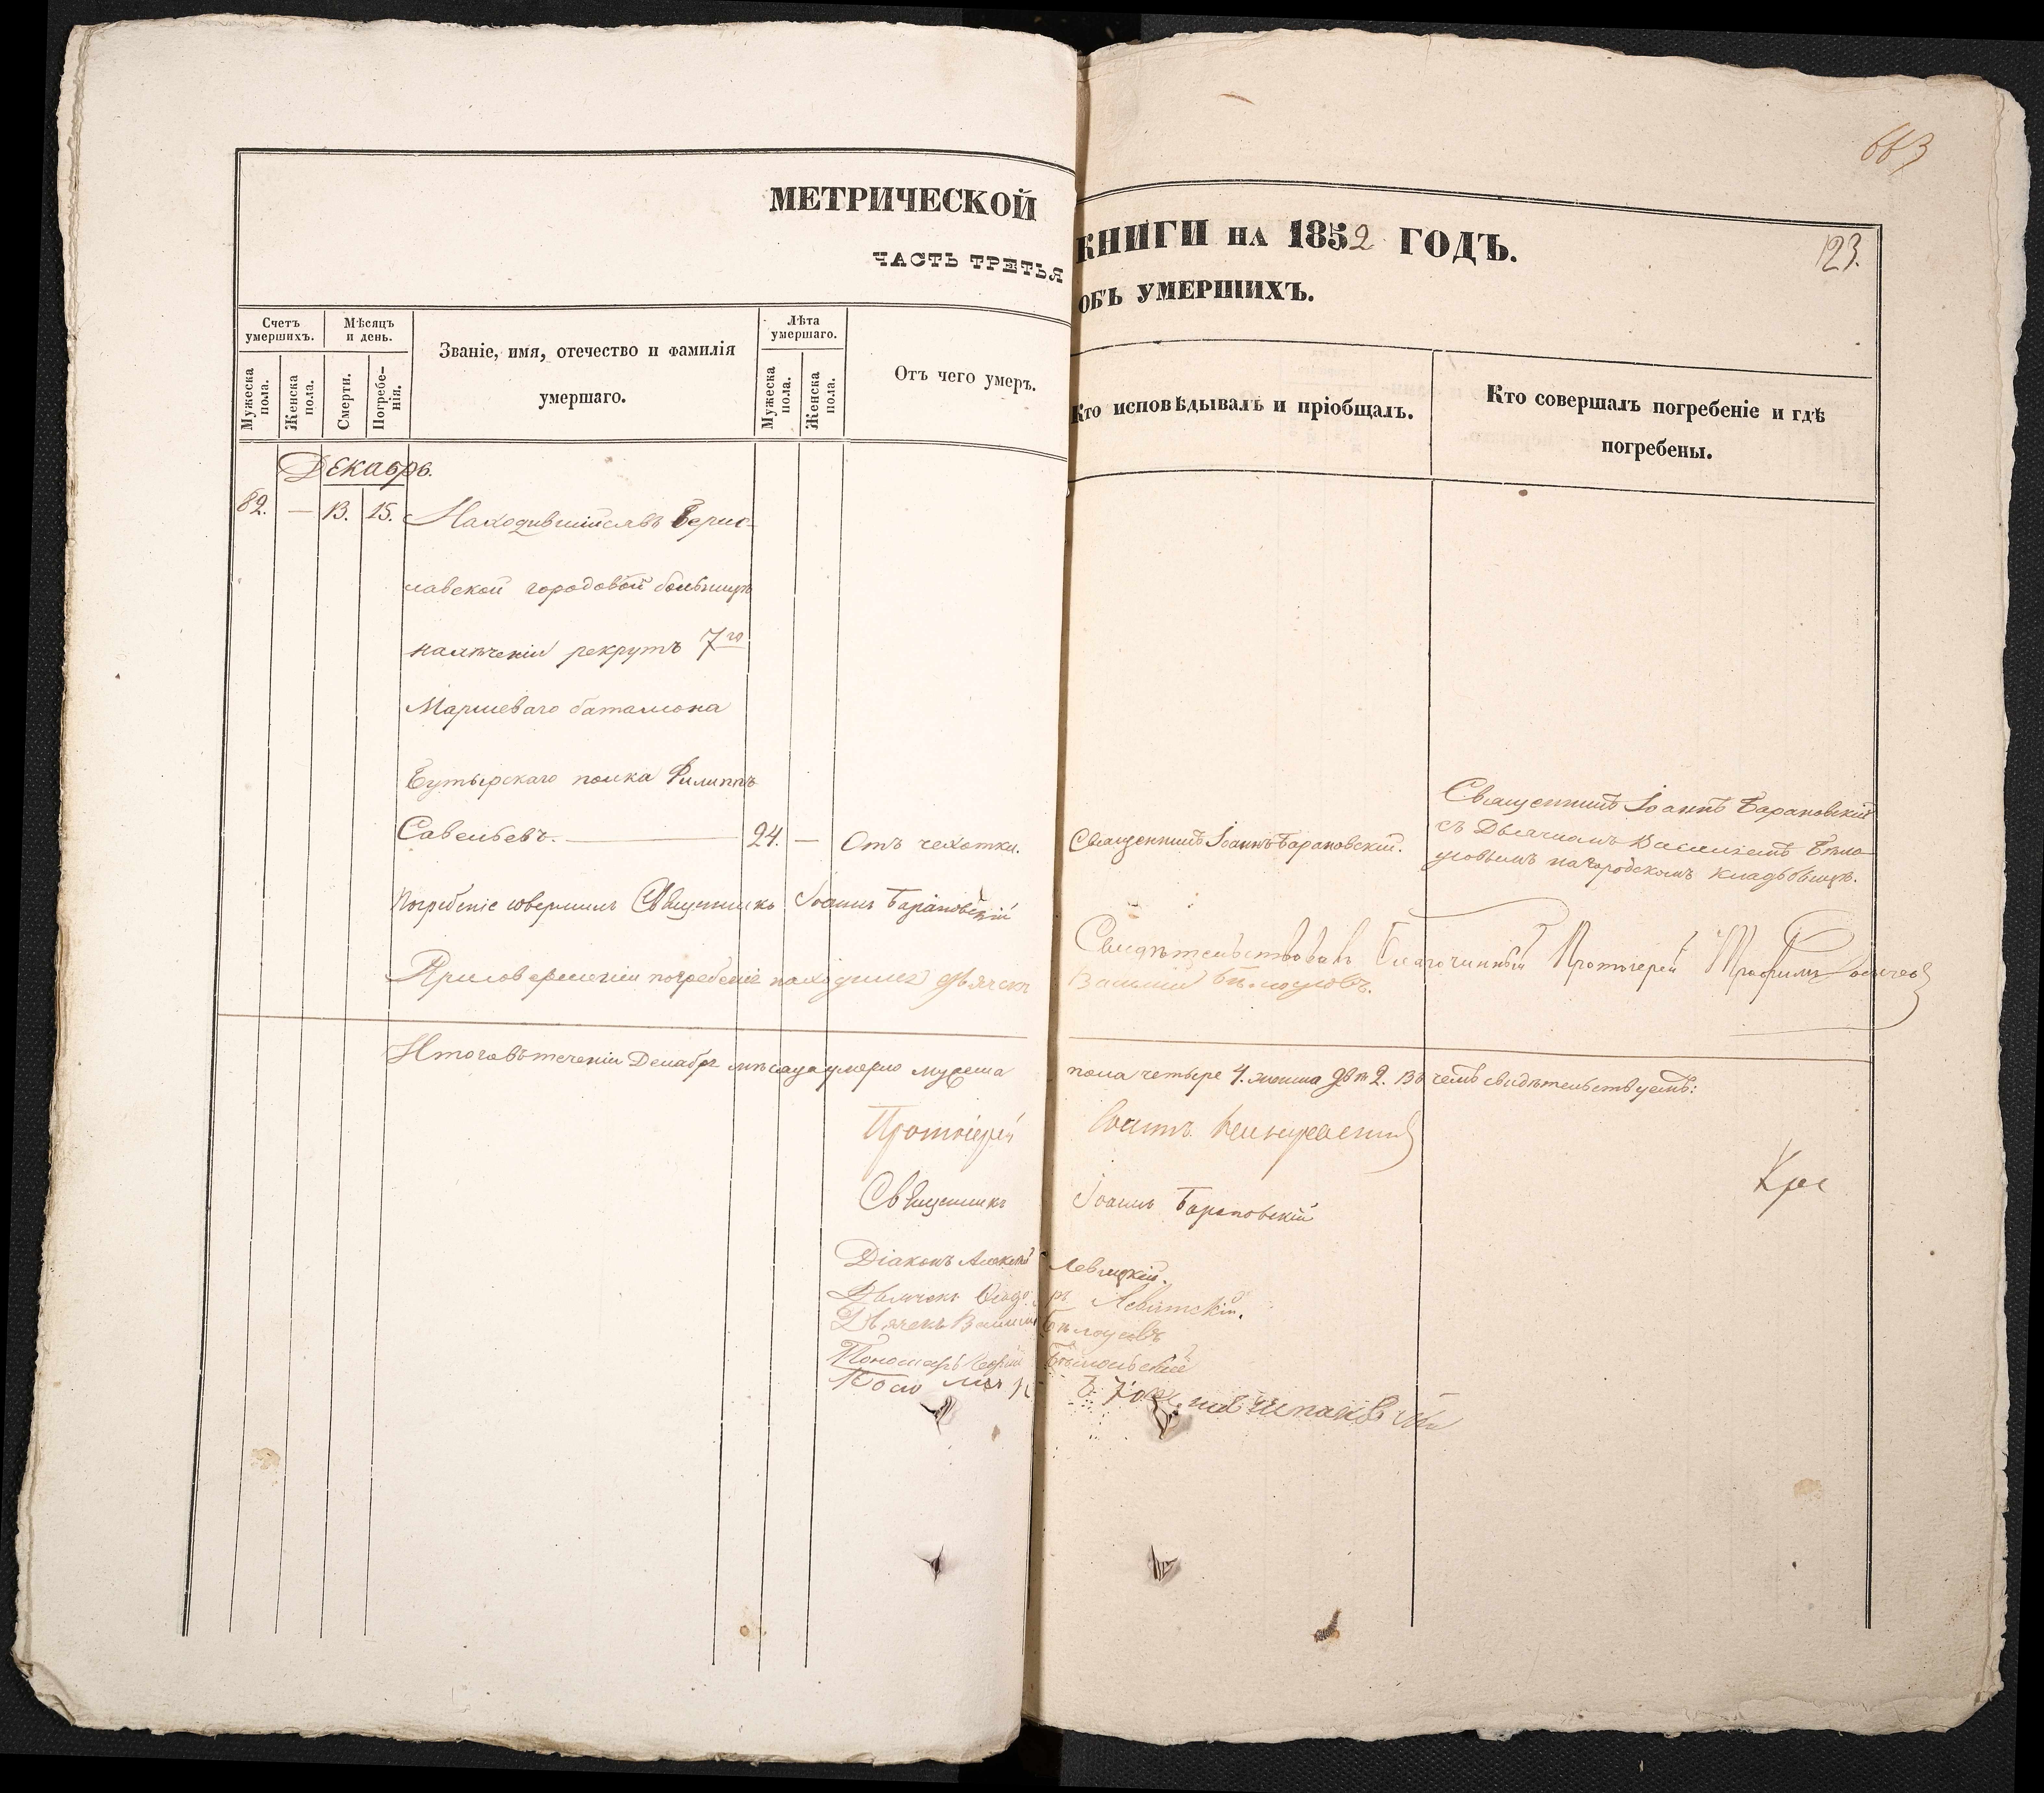 663
МЕТРИЧЕСКОЙ КНИГИ НА 1852 ГОДЪ.
123.
ЧАСТЬ ТРЕТЬЯ ОБЪ УМЕРШИХЪ.
Счетъ умершихъ.
Мужеска пола.
Женска пола.
Мѣсяцъ и день.
Смерти.
Погребе-нія.
Званіе, имя, отечество и фамилія
умершаго.
Лѣта умершаго.
Мужеска пола.
Женска пола.
Отъ чего умеръ.
Кто исповѣдывалъ и пріобщалъ.
Кто совершалъ погребеніе и гдѣ
погребены.
Декабрь.
82. — 13. 15. Находившійся въ Берис-
лавской городовой больницѣ
на лѣченіи рекрутъ 7го
Маршеваго баталіона
Бутырскаго полка Филиппъ
Савельевъ. — 24. — Отъ чехотки.
Священникъ Іоаннъ Барановскій.
Священникъ Іоаннъ Барановскій
съ Дьячкомъ Василіемъ Бѣло-
усовымъ на городскомъ кладбищѣ.
Погребеніе совершилъ Священникъ Іоаннъ Барановскій
При совершеніи погребенія находился Дьячекъ Василій Бѣлоусовъ.
Свидѣтельствовалъ Благочинный Протоіерей Трофимъ
Итого въ теченіи Декабря мѣсяца умерло мужеска пола четыре 4. женска двѣ 2. Въ чемъ свидѣтельствуемъ:
Протоіерей Іоаннъ
Священникъ Іоаннъ Барановскій
Кре
Діаконъ Алексѣй Левицкій.
Дьячекъ Ѳеодоръ Левитскій.
Дьячекъ Василій Бѣлоусовъ
Пономарь